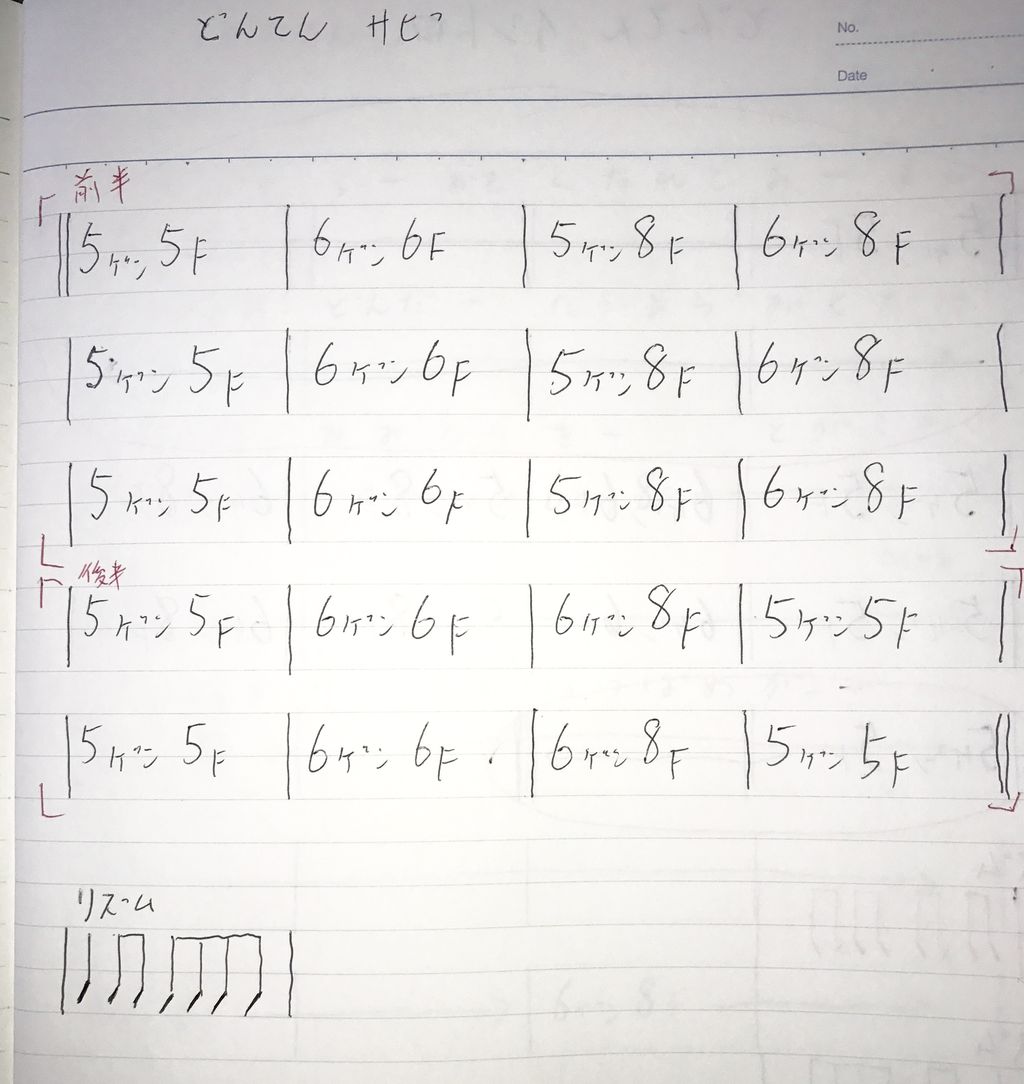 どんてん サビ
No.
Date
前半
5ゲン 5F 6ゲン 6F 5ゲン 8F 6ゲン 8F
5ゲン 5F 6ゲン 6F 5ゲン 8F 6ゲン 8F
5ゲン 5F 6ゲン 6F 5ゲン 8F 6ゲン 8F
後半
5ゲン 5F 6ゲン 6F 6ゲン 8F 5ゲン 5F
5ゲン 5F 6ゲン 6F 6ゲン 8F 5ゲン 5F
リズーム